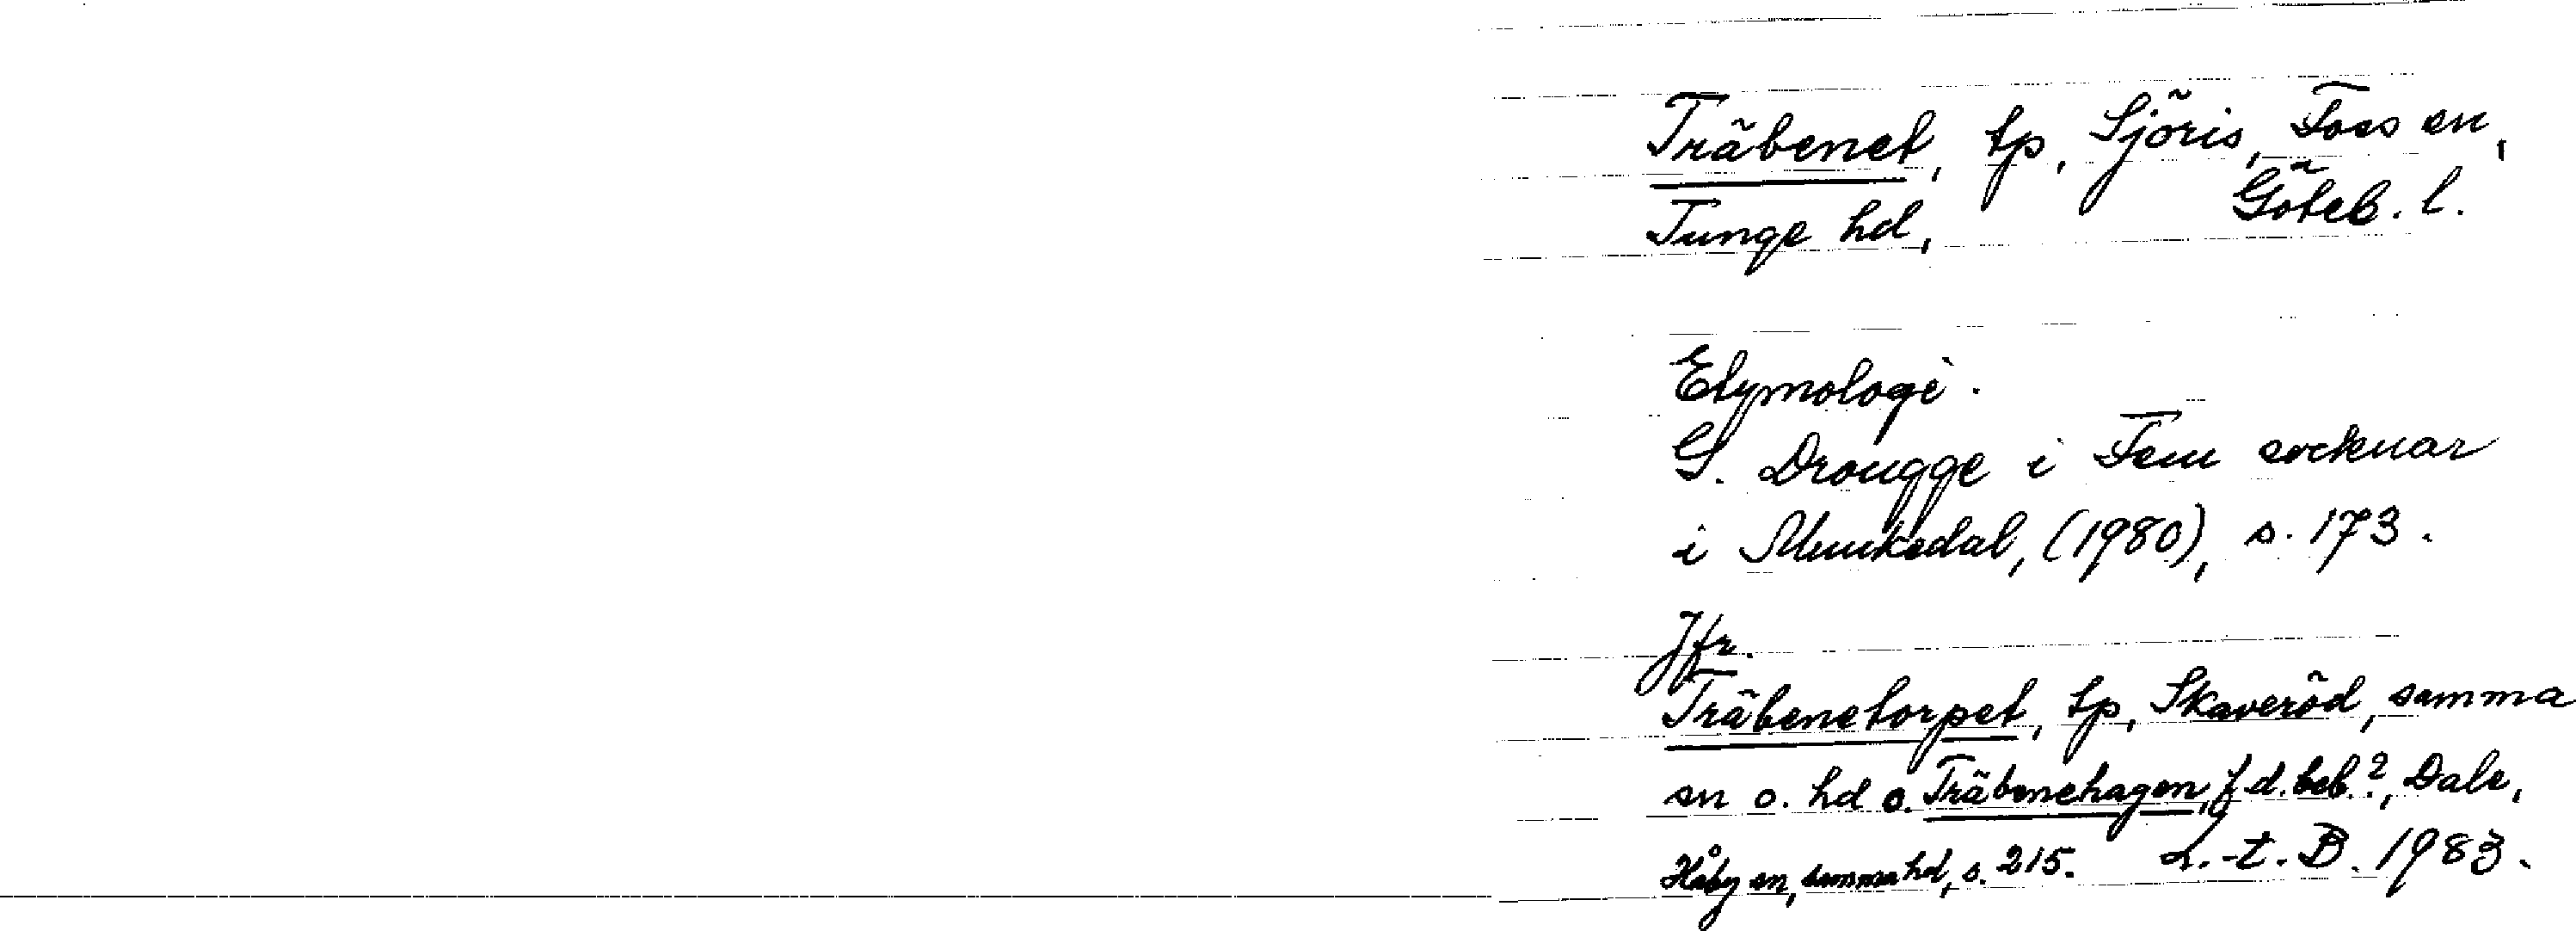 Träbenet, tp, Sjöris, Foss sn,
Tunge hd, Göteb. l.
Etymologi.
G. Drougge i Fem socknar
i Munkedal, (1980), s. 173.
Jfr.
Träbenetorpet, tp, Skaveröd, samma
sn o. hd o. Träbenehagen, f.d. beb.?, Dale,
Håby sn, samma hd, s. 215. L.-t. B. 1983.